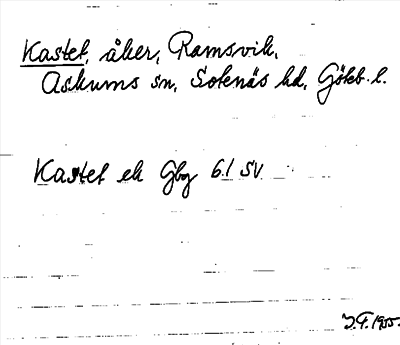 Kastet, åker, Ramsvik,
Askums sn, Sotenäs hd, Göteb. l.
Kastet ek Gbg 6.1 SV
J.F. 1955.